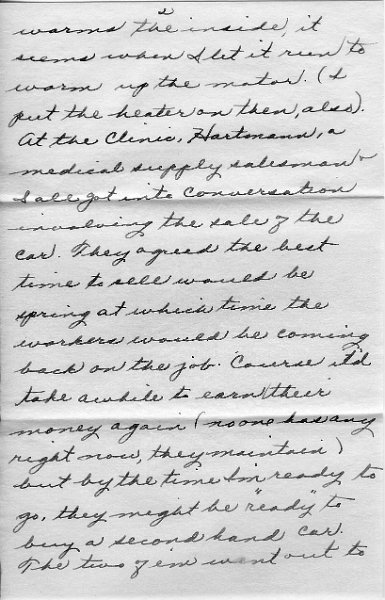 2
warms the inside, it
seems when I let it run to
warm up the motor. (I
put the heater on then, also).
At the Clinic, Hartmann, a
medical supply salesman &
I all got into conversation
involving the sale of the
car. They agreed the best
time to sell would be
spring at which time the
workers would be coming
back on the job. Course it'd
take awhile to earn their
money again (no one has any
right now, they maintain)
but by the time I'm ready to
go, they might be "ready" to
buy a second hand car.
The two of 'em went out to